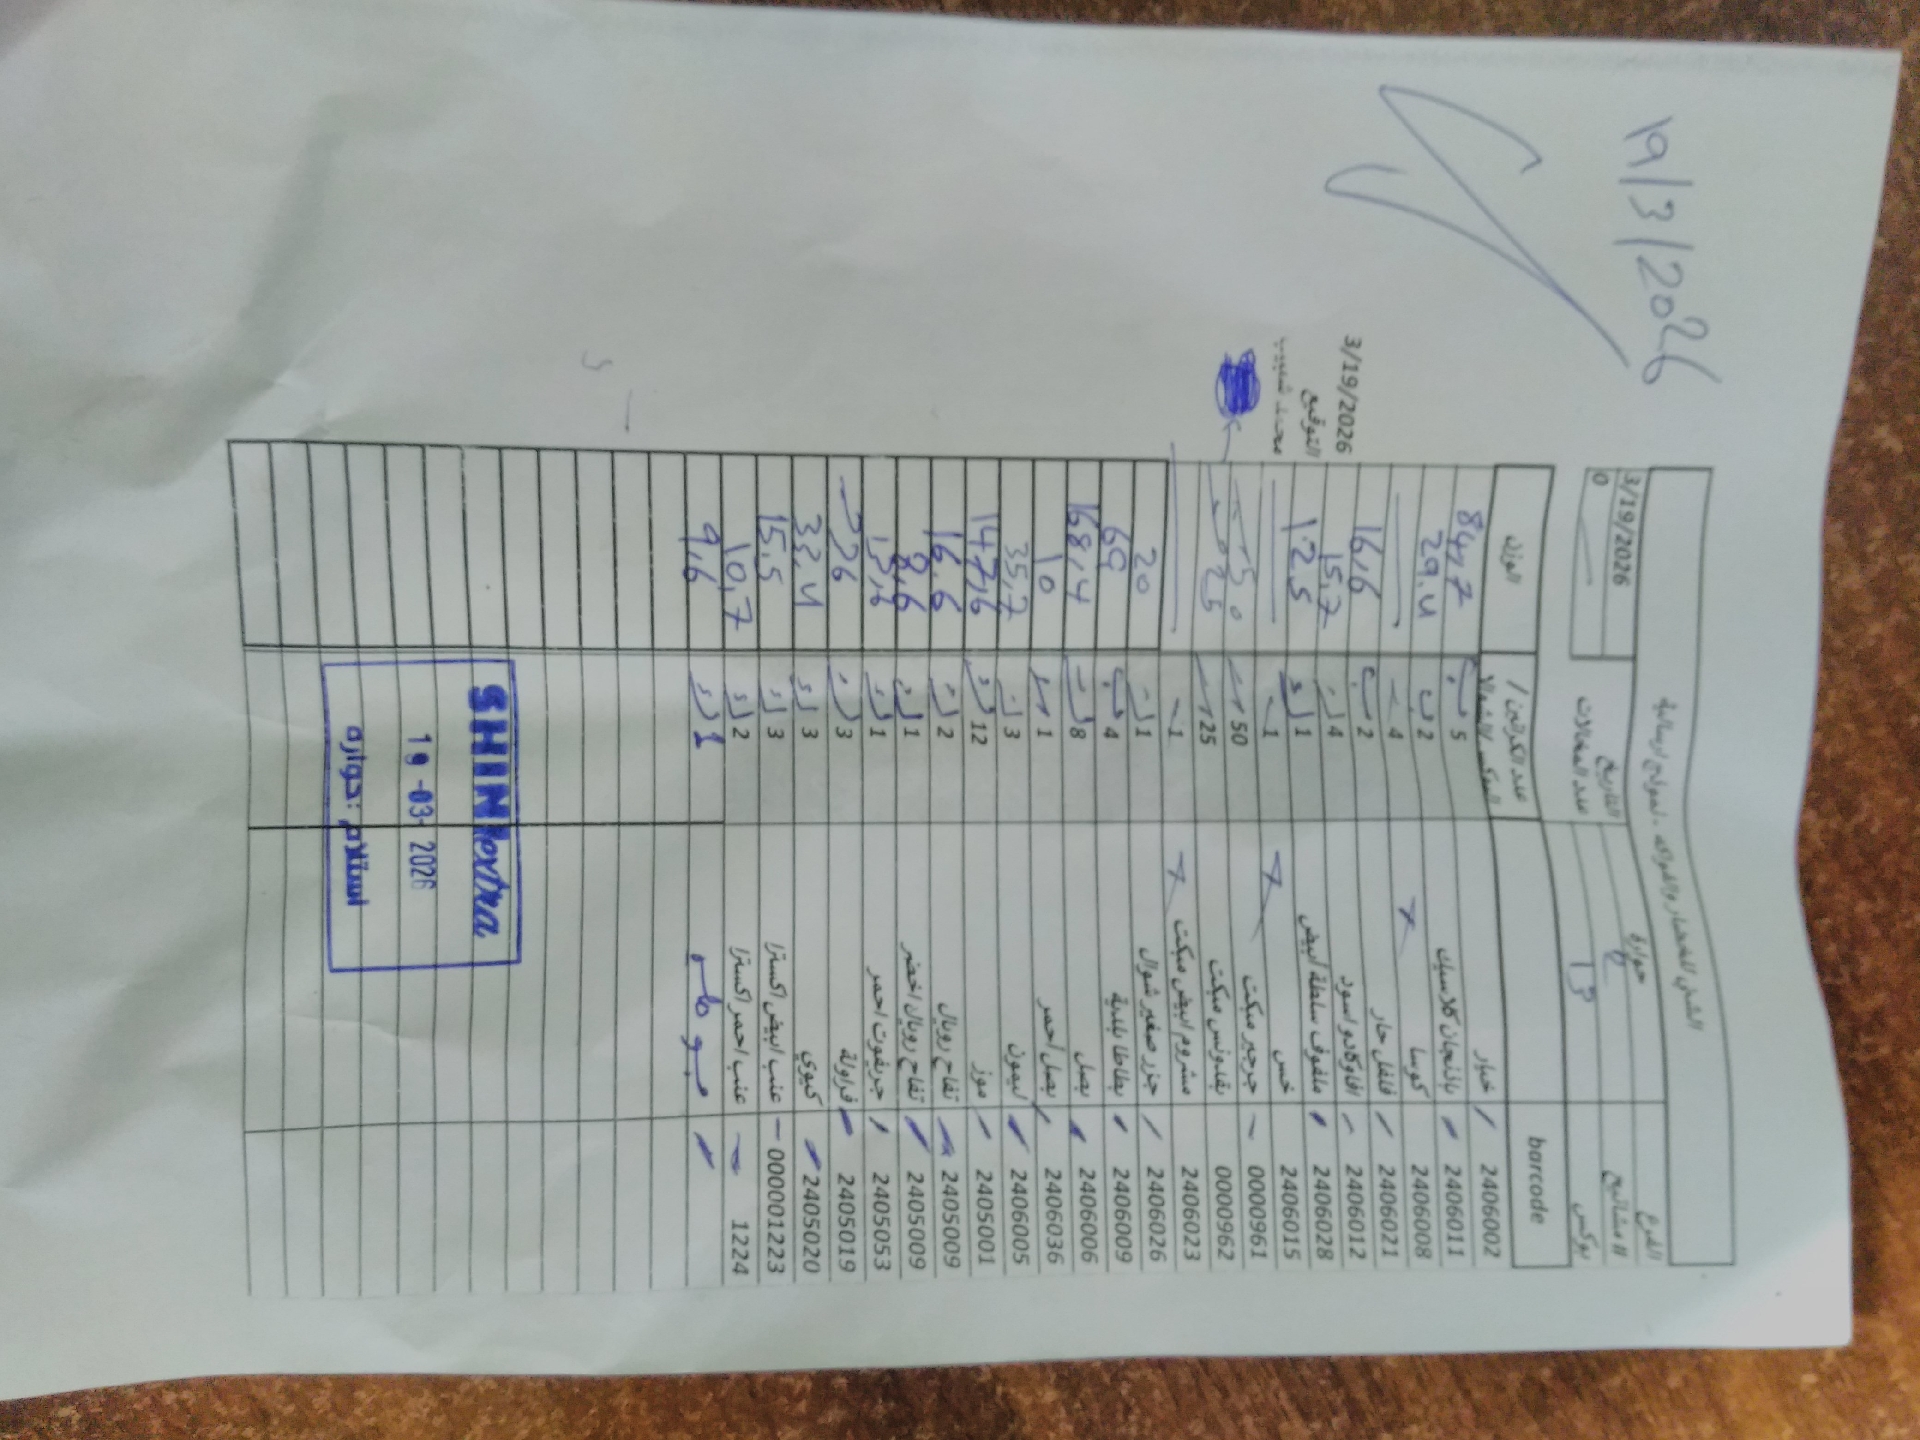 19/3/2026
الفرع حوارة 3/19/2026
التاريخ
barcode عدد الكراتين / الوزن
2406002 خيار 5 84,7
2406011 باذنجان كلاسيك 2 29.4
2406008 كوسا 4
2406021 فلفل حار 2 16,6
2406012 افاوكادو اسود 4 15,7
2406028 ملفوف سلطة ابيض 1 12.5
2406015 خس 1
0000961 جرجير مبكت 50 50
0000962 بقدونس مبكت 25 25
2406023 مشروم ابيض مبكت 1
2406026 جزر صغير شوال 1 20
2406009 بطاطا بلدية 4 69
2406006 بصل 8 168,4
2406036 بصل احمر 1 10
2406005 ليمون 3 35,7
2405001 موز 12 147,6
2405009 تفاح رويال 2 16.6
2405009 تفاح رويال اخضر 1 8,6
2405053 جريفوت احمر 1 13,6
2405019 فراولة 3
2405020 كيوي 3 33.4
000001223 عنب ابيض اكسترا 3 15.5
1224 عنب احمر اكسترا 2 10,7
1 9,6
3/19/2026
التوقيع
SHINI extra
19-03-2026
استلام : حواره